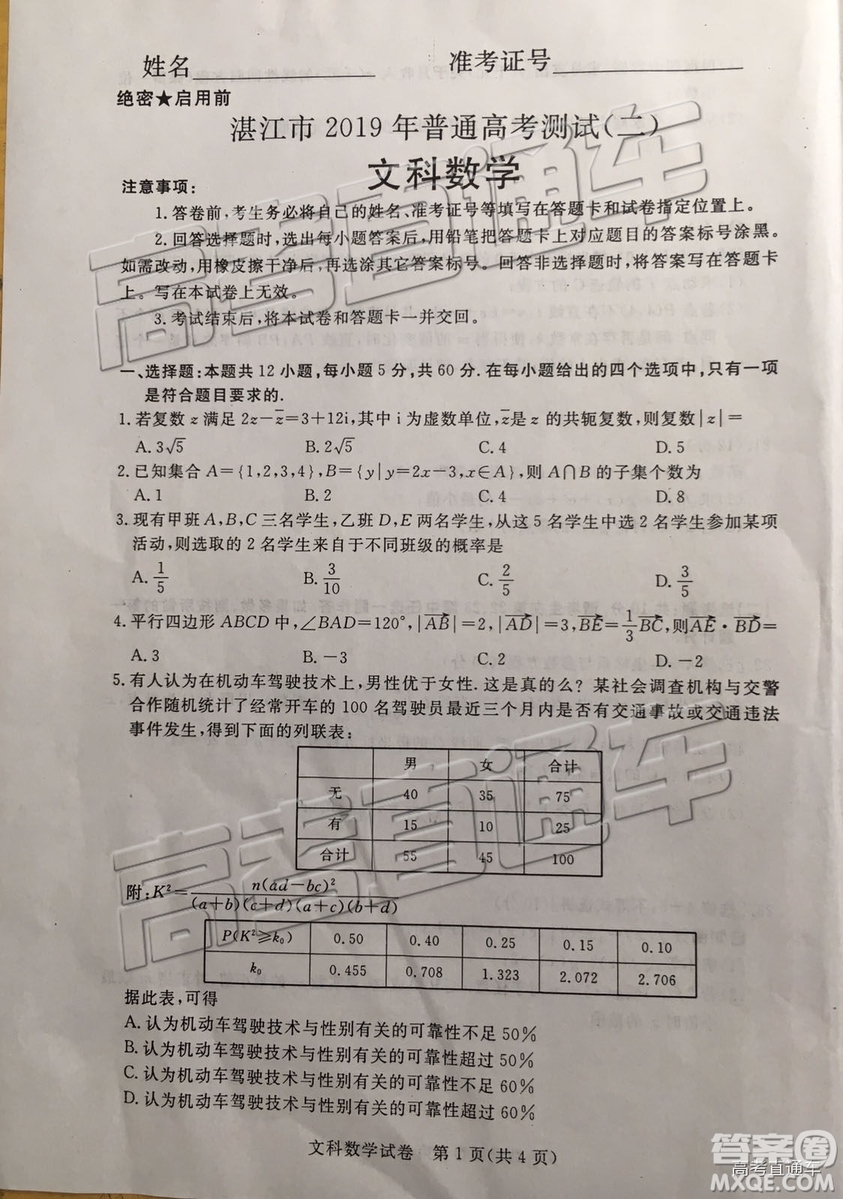 姓名 准考证号
绝密★启用前
湛江市 2019 年普通高考测试(二)
文科数学
注意事项:
1.答卷前,考生务必将自己的姓名、准考证号等填写在答题卡和试卷指定位置上。
2.回答选择题时,选出每小题答案后,用铅笔把答题卡上对应题目的答案标号涂黑。
如需改动,用橡皮擦干净后,再选涂其它答案标号。回答非选择题时,将答案写在答题卡
上。写在本试卷上无效。
3.考试结束后,将本试卷和答题卡一并交回。
一、选择题:本题共 12 小题,每小题 5 分,共 60 分.在每小题给出的四个选项中,只有一项
是符合题目要求的.
1.若复数 z 满足 2z-z̄=3+12i,其中 i 为虚数单位,z̄是 z 的共轭复数,则复数|z|=
A.3√5 B.2√5 C.4 D.5
2.已知集合 A={1,2,3,4},B={y|y=2x-3,x∈A},则 A∩B 的子集个数为
A.1 B.2 C.4 D.8
3.现有甲班 A,B,C 三名学生,乙班 D,E 两名学生,从这 5 名学生中选 2 名学生参加某项
活动,则选取的 2 名学生来自于不同班级的概率是
A.1/5 B.3/10 C.2/5 D.3/5
4.平行四边形 ABCD 中,∠BAD=120°,|AB→|=2,|AD→|=3,BE→=1/3BC→,则AE→·BD→=
A.3 B.-3 C.2 D.-2
5.有人认为在机动车驾驶技术上,男性优于女性.这是真的么?某社会调查机构与交警
合作随机统计了经常开车的 100 名驾驶员最近三个月内是否有交通事故或交通违法
事件发生,得到下面的列联表:
男 女 合计
无 40 35 75
有 15 10 25
合计 55 45 100
附:K²=n(ad-bc)²/(a+b)(c+d)(a+c)(b+d)
P(K²≥k₀) 0.50 0.40 0.25 0.15 0.10
k₀ 0.455 0.708 1.323 2.072 2.706
据此表,可得
A.认为机动车驾驶技术与性别有关的可靠性不足 50%
B.认为机动车驾驶技术与性别有关的可靠性超过 50%
C.认为机动车驾驶技术与性别有关的可靠性不足 60%
D.认为机动车驾驶技术与性别有关的可靠性超过 60%
文科数学试卷 第 1 页(共 4 页)
高考直通车
高考直通车
答案圈
高考直通车
MXQE.COM